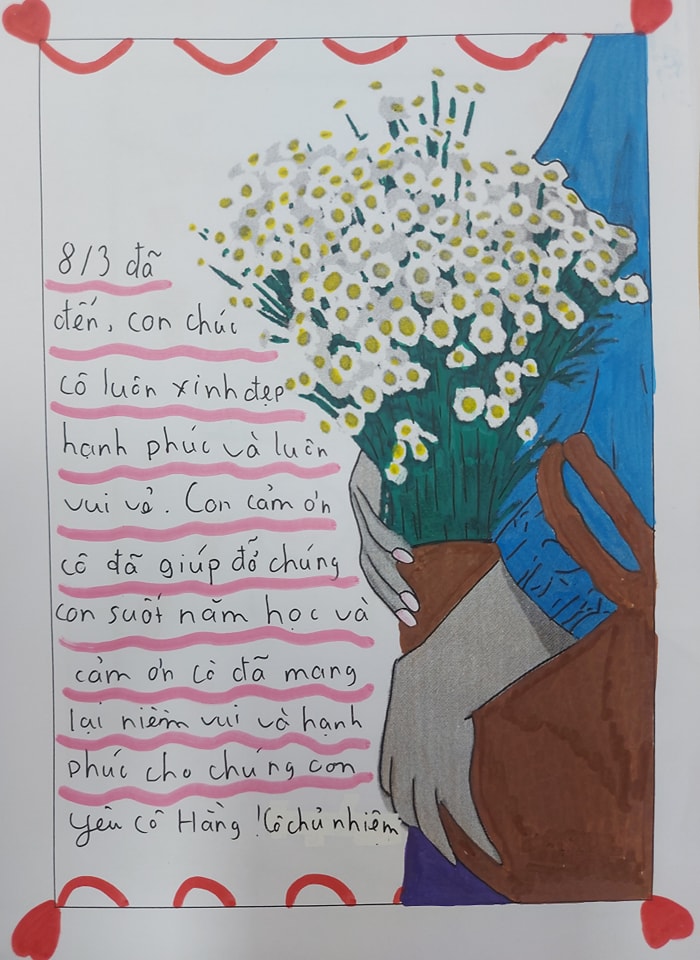 8/3 đã
đến, con chúc
cô luôn xinh đẹp
hạnh phúc và luôn
vui vẻ. Con cảm ơn
cô đã giúp đỡ chúng
con suốt năm học và
cảm ơn cô đã mang
lại niềm vui và hạnh
phúc cho chúng con
yêu cô Hằng! Cô chủ nhiệm